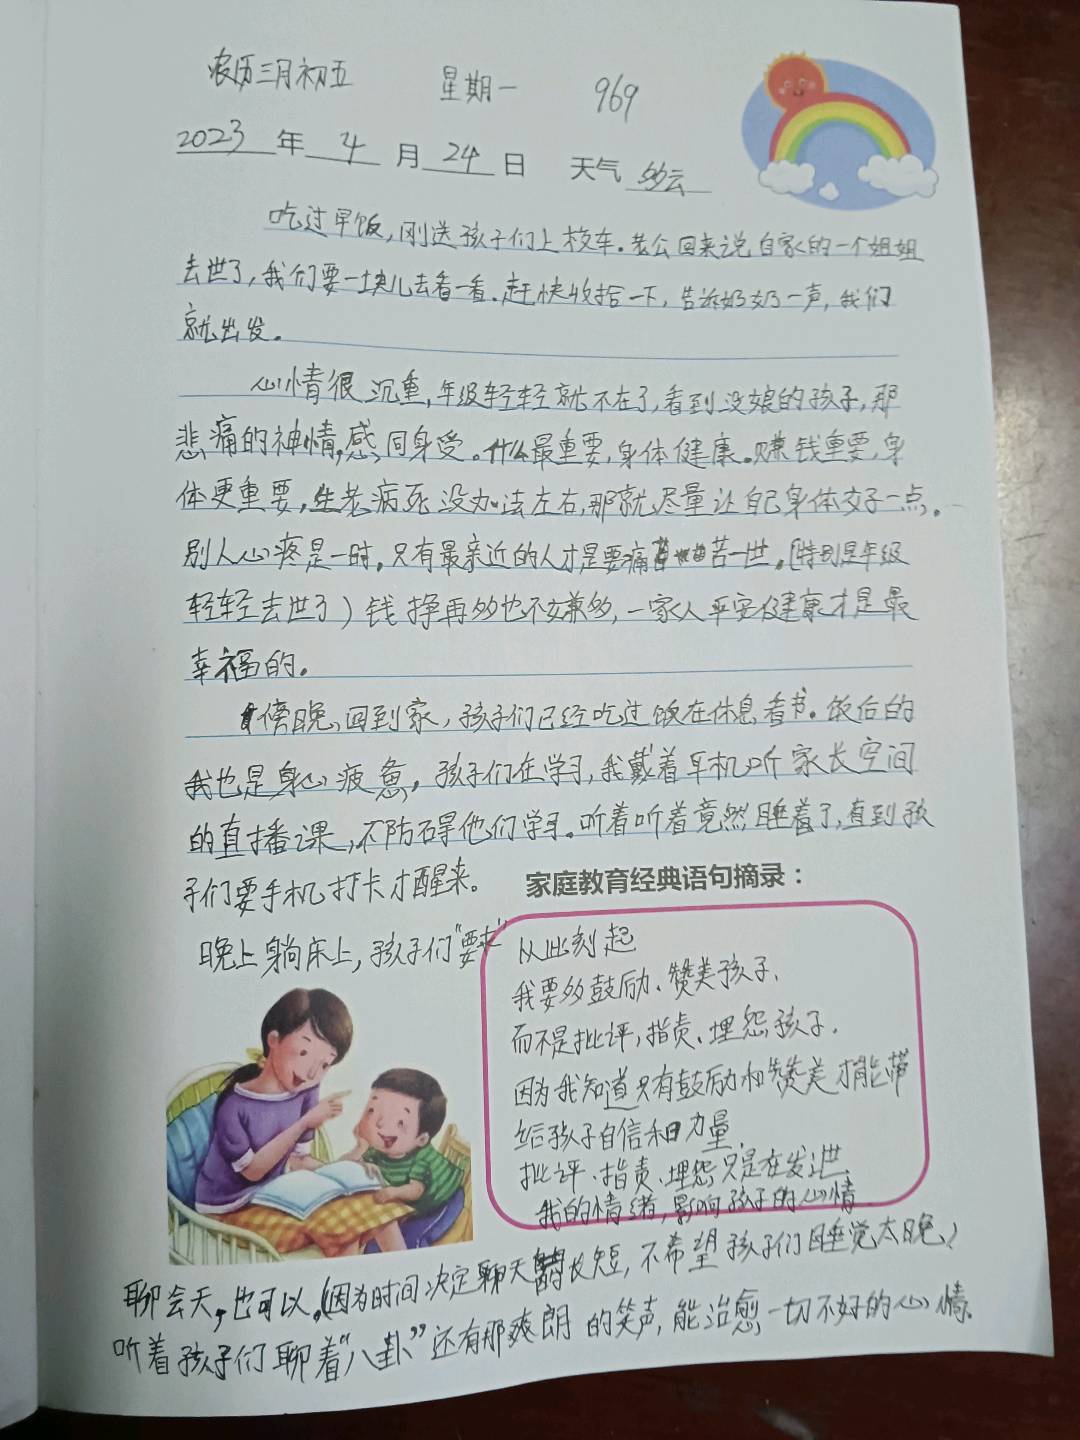 农历三月初五 星期一 969
2023年4月24日 天气多云
吃过早饭，刚送孩子们上校车。老公回来说自家的一个姐姐
去世了，我们要一块儿去看一看。赶快收拾一下，告诉奶奶一声，我们
就出发。
心情很沉重，年级轻轻就不在了，看到没娘的孩子，那
悲痛的神情，感同身受。什么最重要，身体健康。赚钱重要，身
体更重要，生老病死没办法左右，那就尽量让自己身体好一点。
别人心疼是一时，只有最亲近的人才是要痛苦一世。（特别是年级
轻轻去世了）钱挣再多也不嫌多，一家人平安健康才是最
幸福的。
傍晚，回到家，孩子们已经吃过饭在休息看书。饭后的
我也是身心疲惫，孩子们在学习，我戴着耳机听家长空间
的直播课，不防碍他们学习。听着听着竟然睡着了，直到孩
子们要手机打卡才醒来。
家庭教育经典语句摘录：
晚上躺床上，孩子们“要求”
从此刻起
我要多鼓励、赞美孩子、
而不是批评，指责、埋怨孩子.
因为我知道只有鼓励和赞美才能带
给孩子自信和力量.
批评、指责、埋怨只是在发泄
我的情绪，影响孩子的心情
聊会天，也可以。（因为时间决定聊天的长短，不希望孩子们睡觉太晚）
听着孩子们聊着“八卦”还有那爽朗的笑声，能治愈一切不好的心情。